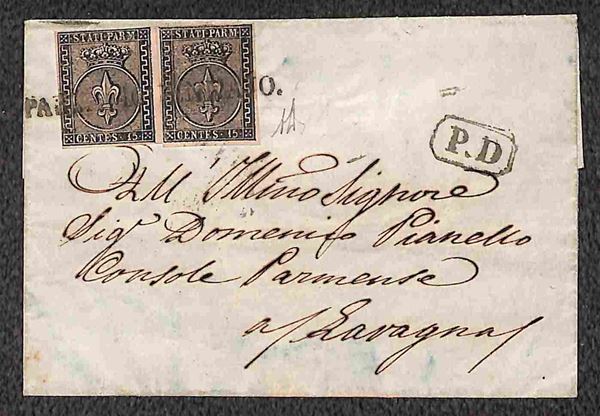 STATI PARM STATI PARM
CENTES. 15 CENTES. 15
P.D
All' Illmo Signore
Sigr Domenico Pianello
Console Parmense
a/ Lavagna/